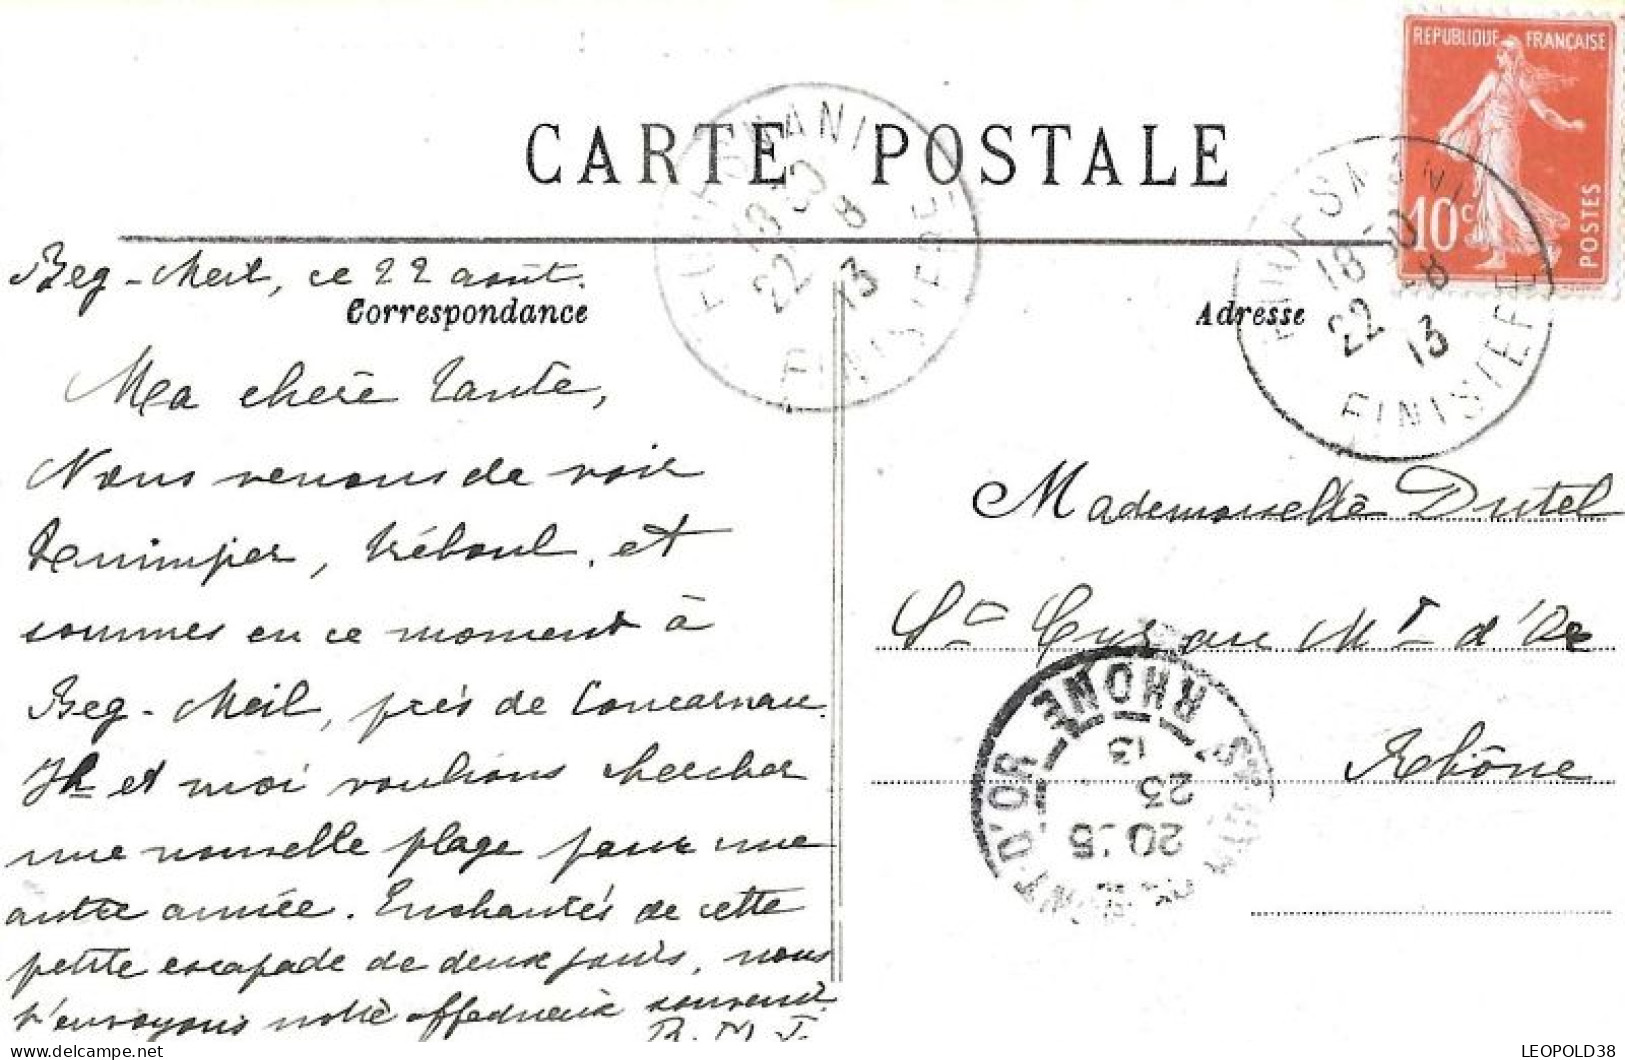 CARTE POSTALE
REPUBLIQUE FRANÇAISE
10c
POSTES
18 30
22 8
13
FINISTERE
FOUESNANT
18 30
22 8
13
FINISTERE
Beg-Meil, ce 22 août.
Correspondance
Ma chère tante,
Nous venons de voir
Quimper, Tréboul, et
sommes en ce moment à
Beg-Meil, près de Concarneau.
et moi voulions chercher
une nouvelle plage pour une
autre année. Enchantés de cette
petite escapade de deux jours, nous
t'envoyons notre affectueux souvenir.
M. J.
Adresse
Mademoiselle Dutel
St Cyr au Mt d'Or
Rhône
MONT-D'OR RHONE
23
13
LEOPOLD38